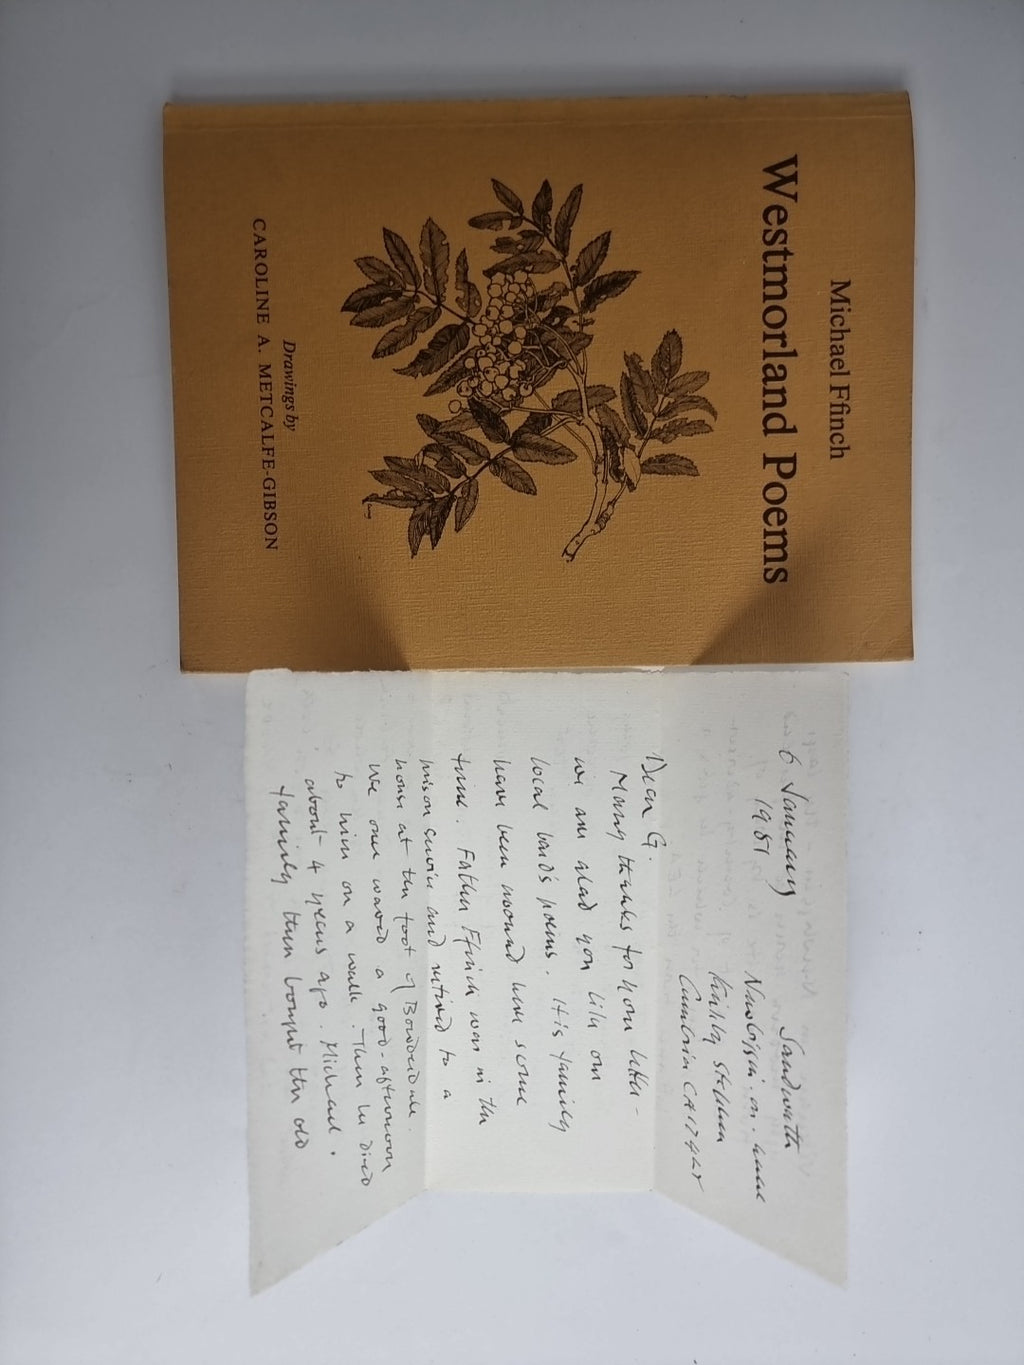 Michael Ffinch
Westmorland Poems
Drawings by
CAROLINE A. METCALFE-GIBSON
6 January
1981
Sandwath
Newbiggin-on-Lune
Kirkby Stephen
Cumbria CA17 4LY
Dear G.
Many thanks for your letter –
we are glad you like our
local bard's poems. His family
have been around here some
time. Father Ffinch was in the
prison service and retired to a
house at the foot of Bowderdale.
We once waved a good-afternoon
to him on a walk. Then he died
about 4 years ago. Michael.
family then bought the old